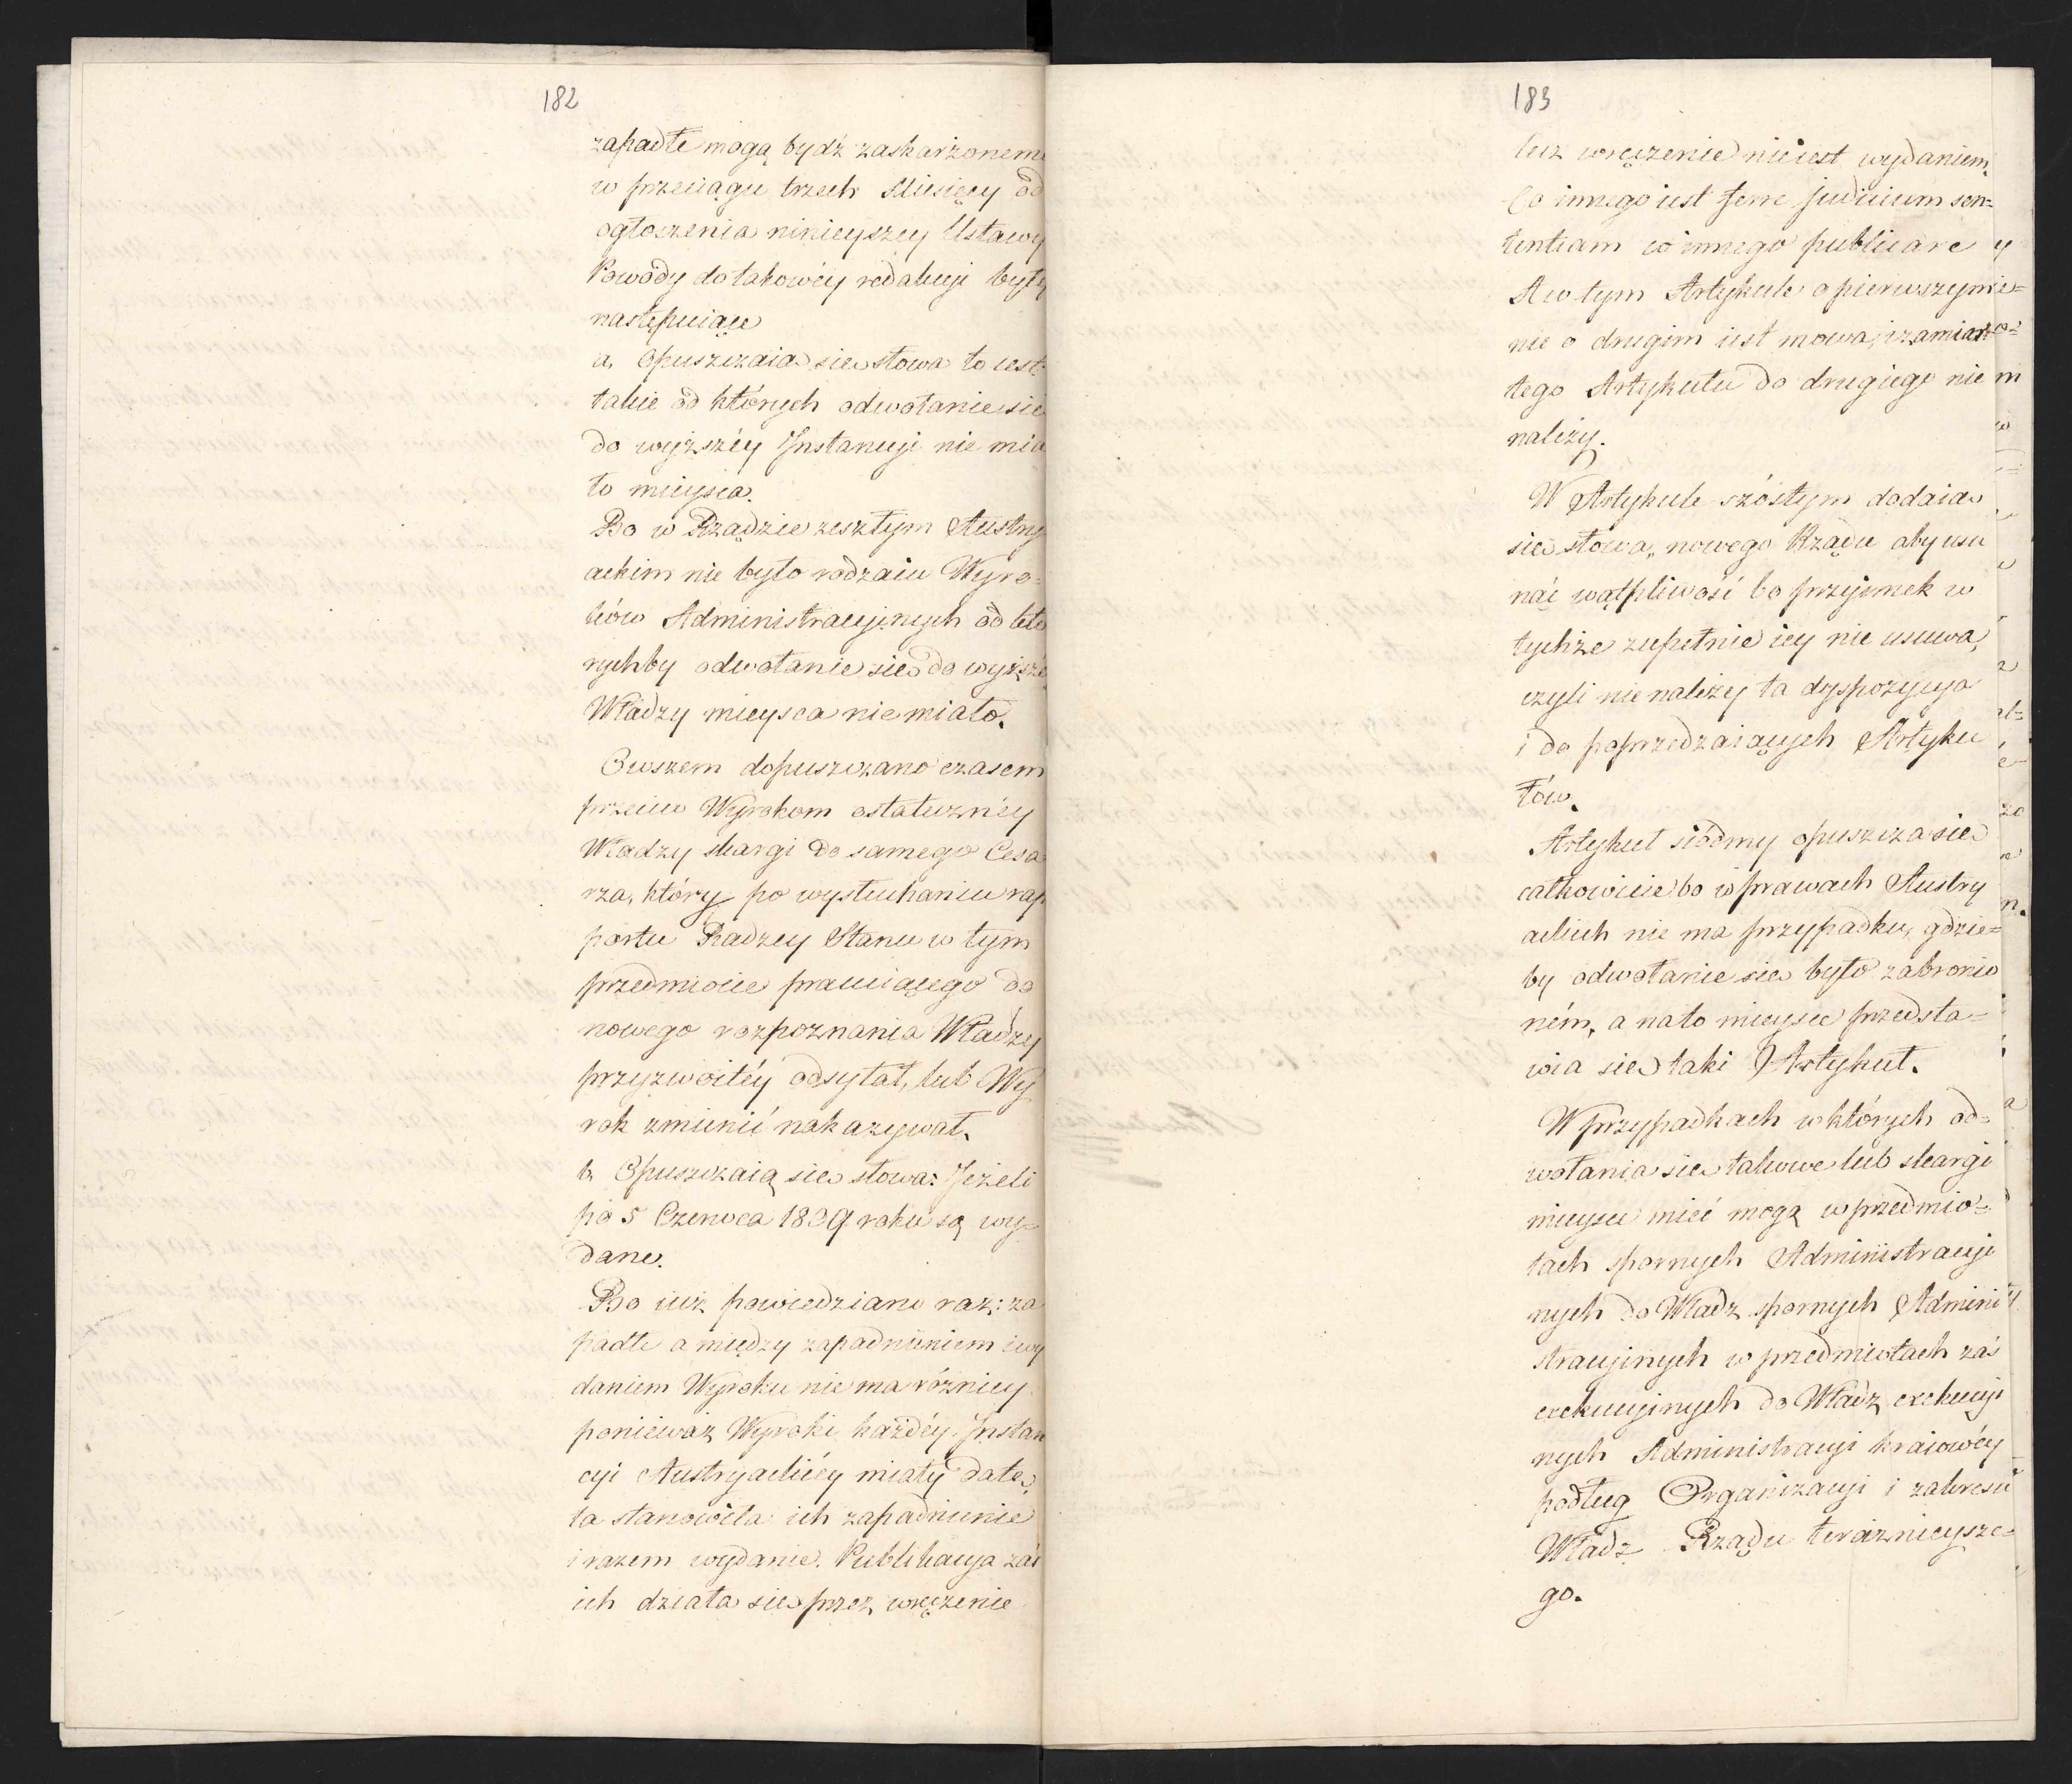 182
zapadłe mogą bydź zaskarżonemi
w przeciągu trzech Miesięcy od
ogłoszenia ninieyszey Ustawy
Powody do takowéy redakcyi były
następuiące
a, Opuszczaia sie słowa to iest
takie od których odwołanie sie
do wyższéy Jnstancyi nie mia
ło mieysca.
Bo w Rządzie zeszłym Austry
ackim nie było rodzaiu Wyro-
ków Administracyinych od któ
rychby odwołanie sie do wyższe
Władzy mieysca nie miało.
Owszem dopuszczano czasem
przeciw Wyrokom ostateczney
Władzy skargi do samego Cesa
rza, który po wysłuchaniu rap
portu Radzcy Stanu w tym
przedmiocie pracuiącego do
nowego rozpoznania Władzy
przyzwoitéy odsyłał, lub Wy
rok zmienić nakazywał.
b, Opuszczaią sie słowa: Jeżeli
po 5 Czerwca 1809 roku są wy-
dane.
Bo iuż powiedziano raz: za
padłe a między zapadnieniem i wy
daniem Wyroku nie ma różnicy
ponieważ Wyroki każdéy Jnstan
cyi Austryackiéy miały datę,
ta stanowiła ich zapadnienie
i razem wydanie. Publikacya zaś
ich działa sie przez wręczenie
183
lecz wręczenie nie iest wydaniem.
Co innego iest ferre judicium sen=
tentiam co innego publicare
A w tym Artykule o pierwszym
nie o drugim iest mowa, i zamiar
tego Artykułu do drugiego nie
należy.
W Artykule szóstym dodaia
sie słowa, nowego Rządu aby usu
nąć wątpliwość bo przyimek w
tychże zupełnie iey nie usuwa,
czyli nie należy ta dyspozycya
i do poprzedzaiących Artyku
łów.
Artykuł siódmy opuszcza sie
całkowicie bo w prawach Austry
ackich nie ma przypadku, gdzie=
by odwołanie sie było zabronio
ném, a na to mieysce przedsta=
wia sie taki Artykuł.
W przypadkach w których od=
wołania sie takowe lub skargi
mieysce mieć mogą w przedmio=
tach spornych Administracyi
nych do Władz spornych Admini
stracyinych w przedmiotach zaś
exekucyinych do Władz exekucyi
nych Administracyi kraiowéy
podług Organizacyi i zakresu
Władz Rządu teraznieysze=
go.